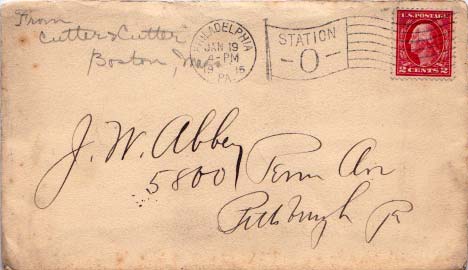 From
Cutter & Cutter
Boston, Mass
PHILADELPHIA
JAN 19
4-PM
1915
PA
STATION
-O-
U.S. POSTAGE
2 CENTS 2
J. W. Abbey
5800 Penn Av
Pittsburgh Pa